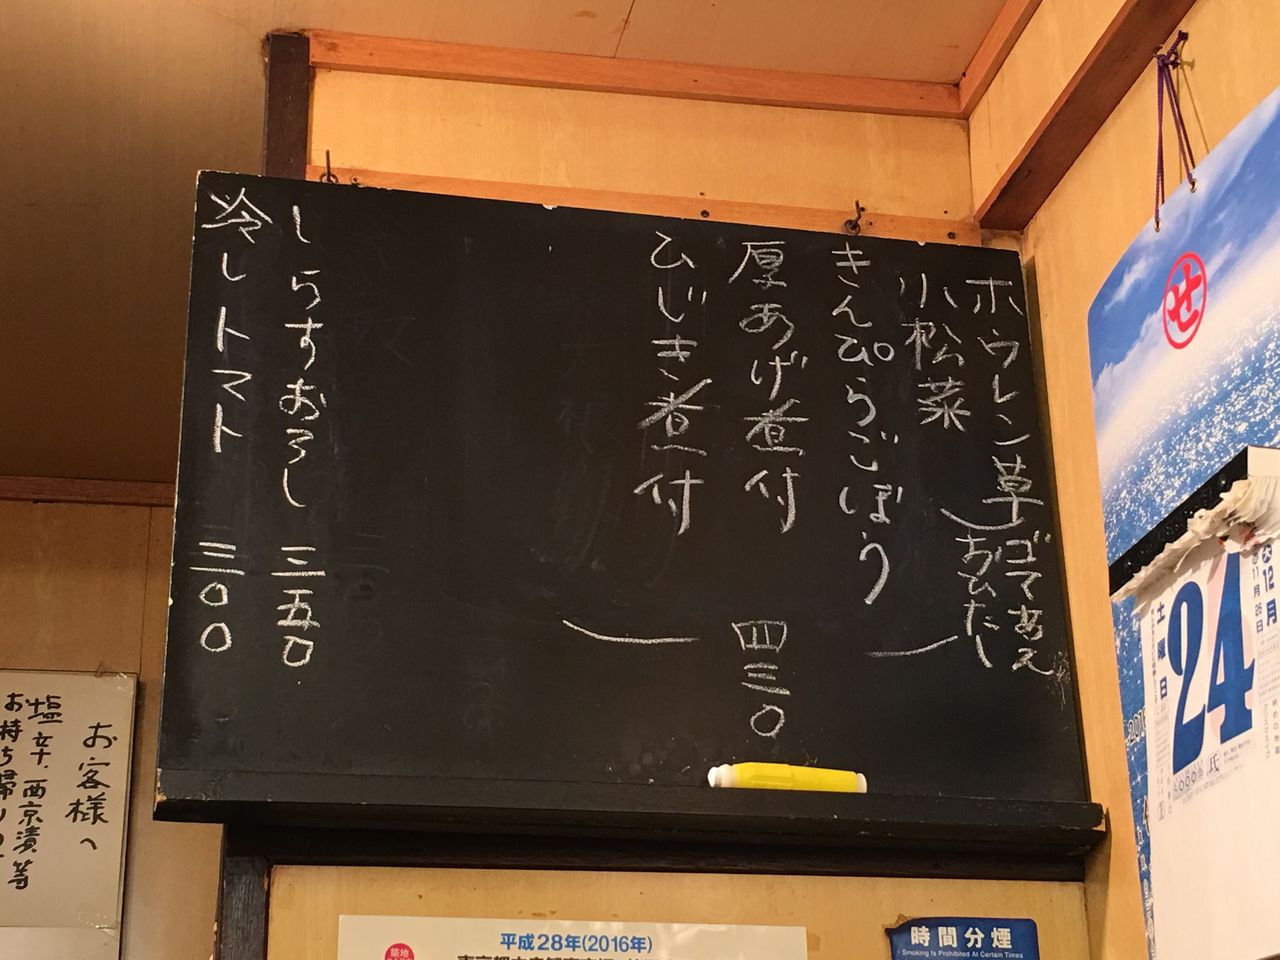 ホウレン草 ゴマあえ
小松菜 おひたし
きんぴらごぼう
厚あげ煮付 四三〇
ひじき煮付
しらすおろし 三五〇
冷しトマト 三〇〇
お客様へ
塩辛、西京漬等
お持ち帰り
平成28年(2016年)
築地
時間分煙
Smoking Is Prohibited At Certain Times
せ
大
12月
11月26日
24
土曜日
2016